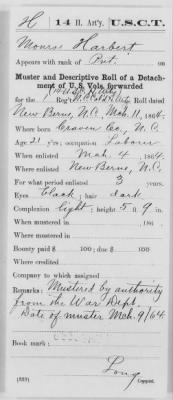 H 14 H. Art'y. U.S.C.T.
Harbert
Appears with rank of Pvt. on
Muster and Descriptive Roll of a Detachment
of U. S. Vols. forwarded
for the Roll dated
New Berne, N.C. Mch. 11, 1864.
Where born Craven Co., N.C.
Age 21 y'rs; occupation Laborer
When enlisted Mch. 4, 1864.
Where enlisted New Berne, N.C.
For what period enlisted 3 years.
Eyes black; hair dark
Complexion light; height 5 ft. 9 in.
When mustered in , 186 .
Where mustered in
Bounty paid $ 100; due $ 100
Where credited
Company to which assigned
Remarks: Mustered by authority
from the War Dept.
Date of muster Mch. 9/64
Book mark:
Long
(339) Copyist.